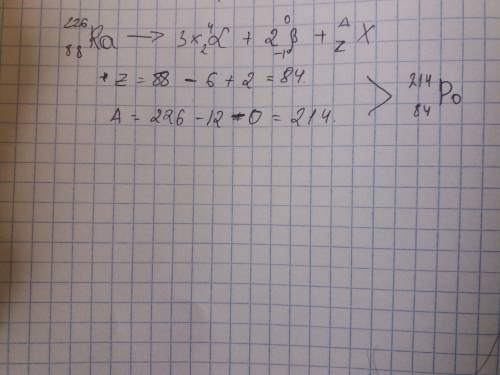 ²²⁶₈₈Ra → 3×⁴₂α + 2⁰₋₁β + ᴬ_Z X
Z = 88 - 6 + 2 = 84.
A = 226 - 12 - 0 = 214.
> ²¹⁴₈₄Po